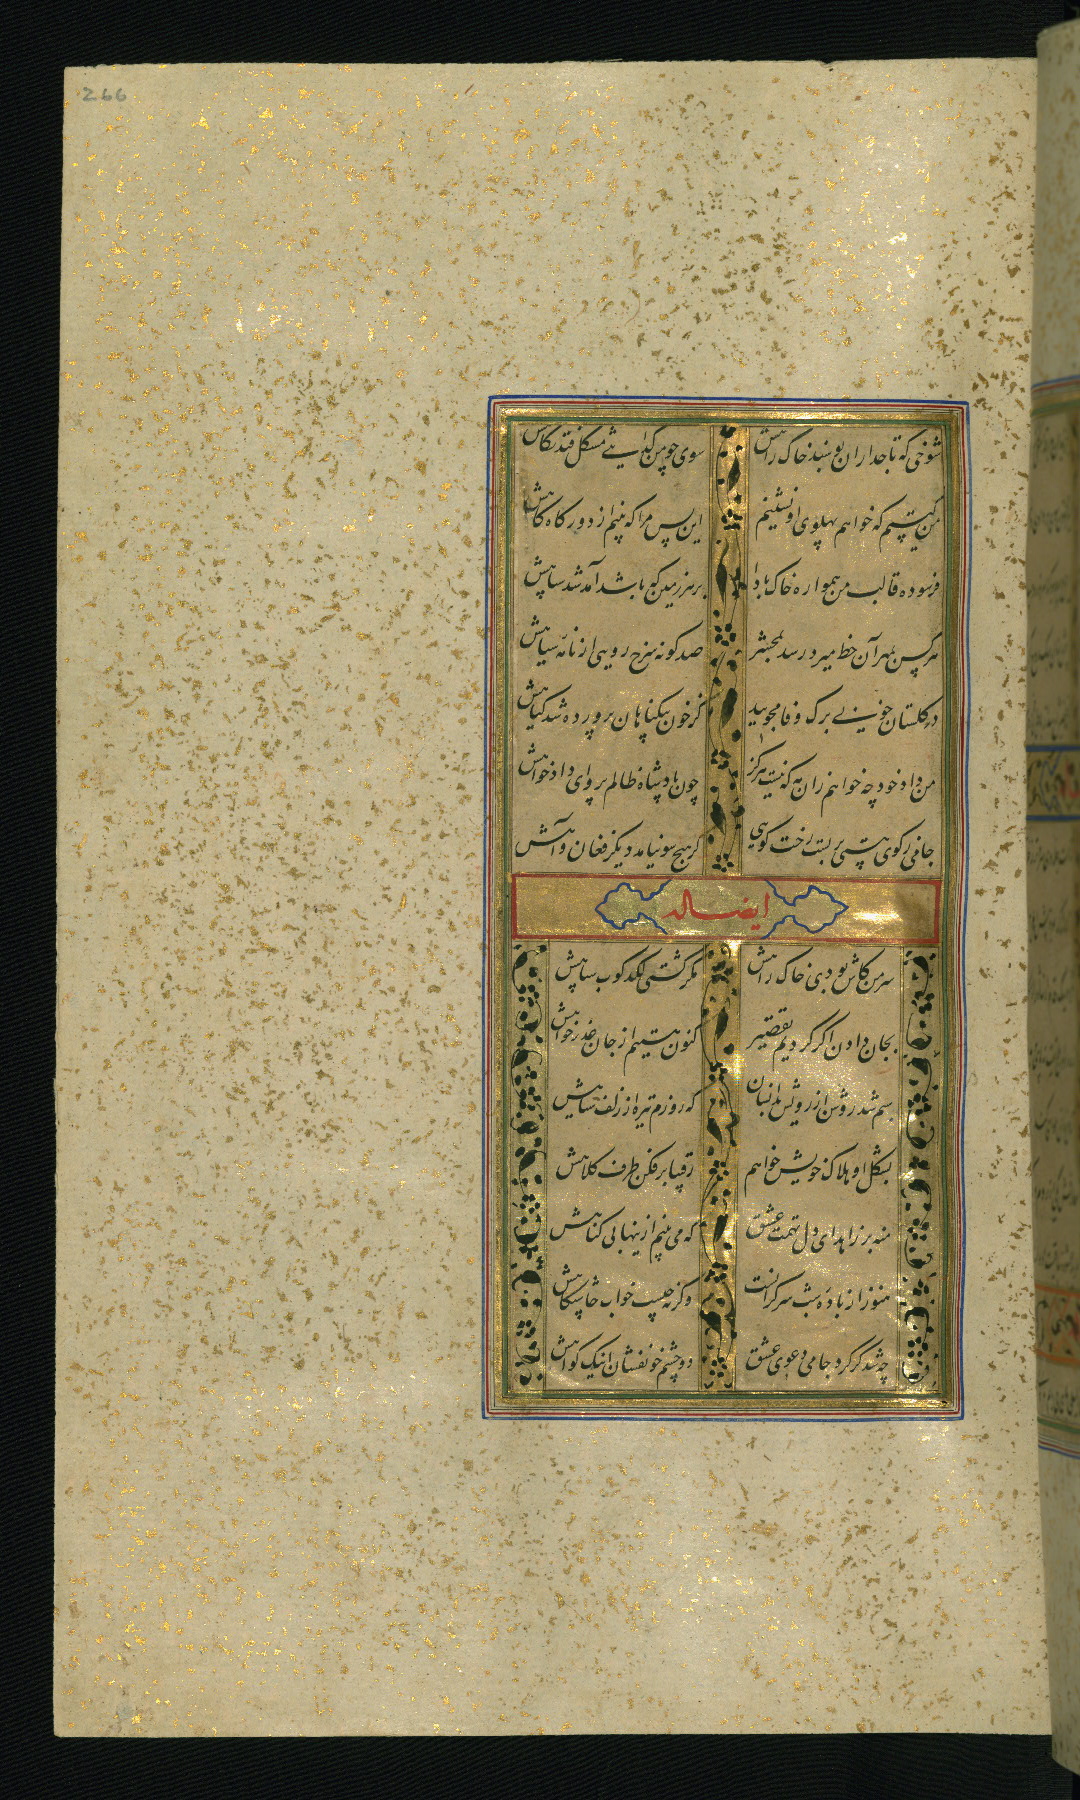 266
شوخی که تاجداران بوسند خاک راهش سوی چو من گدایی مشکل فتد نگاهش
من کیستم که خواهم پهلوی او نشینم این بس مرا که بینم از دور گاه گاهش
فرسوده قالب من همواره خاک بادا بر هر زمین که باشد آمد شد سپاهش
هر کس بمهر آن خط میرد رسد بمحشر صد گونه سرخ رویی از نامه سیاهش
در گلستان خوبی برک وفا مجویید کز خون بیگناهان پرورده شد گیاهش
من داد خود چه خواهم زان مه که نیست هرگز چون پادشاه ظالم پروای دادخواهش
جامی ز کوی هستی بربست رخت گویی کز هیچ سو نیامد دیگر فغان و آهش
ایضاله
سر من کاش بودی خاک راهش مگر گشتی لگدکوب سپاهش
بجان دادن اگر کردیم تقصیر کنون هستیم از جان عذرخواهش
بسم شد روشن از رویش بدانسان که روزم تیره از زلف سیاهش
بشکل او هلاک خویش خواهم رقیبا بر فکن طرف کلاهش
منه بر زاهد ای دل تهمت عشق که می بینم ازینها بی گناهش
هنوز از باده شب سر گرانست وگرنه چیست خواب چاشتگاهش
چه شد گر کرد جامی دعوی عشق دو چشم خونفشان اینک گواهش